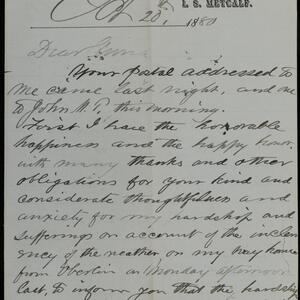 L. S. METCALF.
Oct 20, 1880
Dear
Your postal addressed to
me came last night, and one
to John M. P. this morning.
First I have the honorable
happiness and the happy honor,
with many thanks and other
obligations for your kind and
considerate thoughtfulness and
anxiety for my hardship and
sufferings on account of the inclem
ency of the weather on my way home
from Oberlin on Monday afternoon
last, to inform you that the hardship